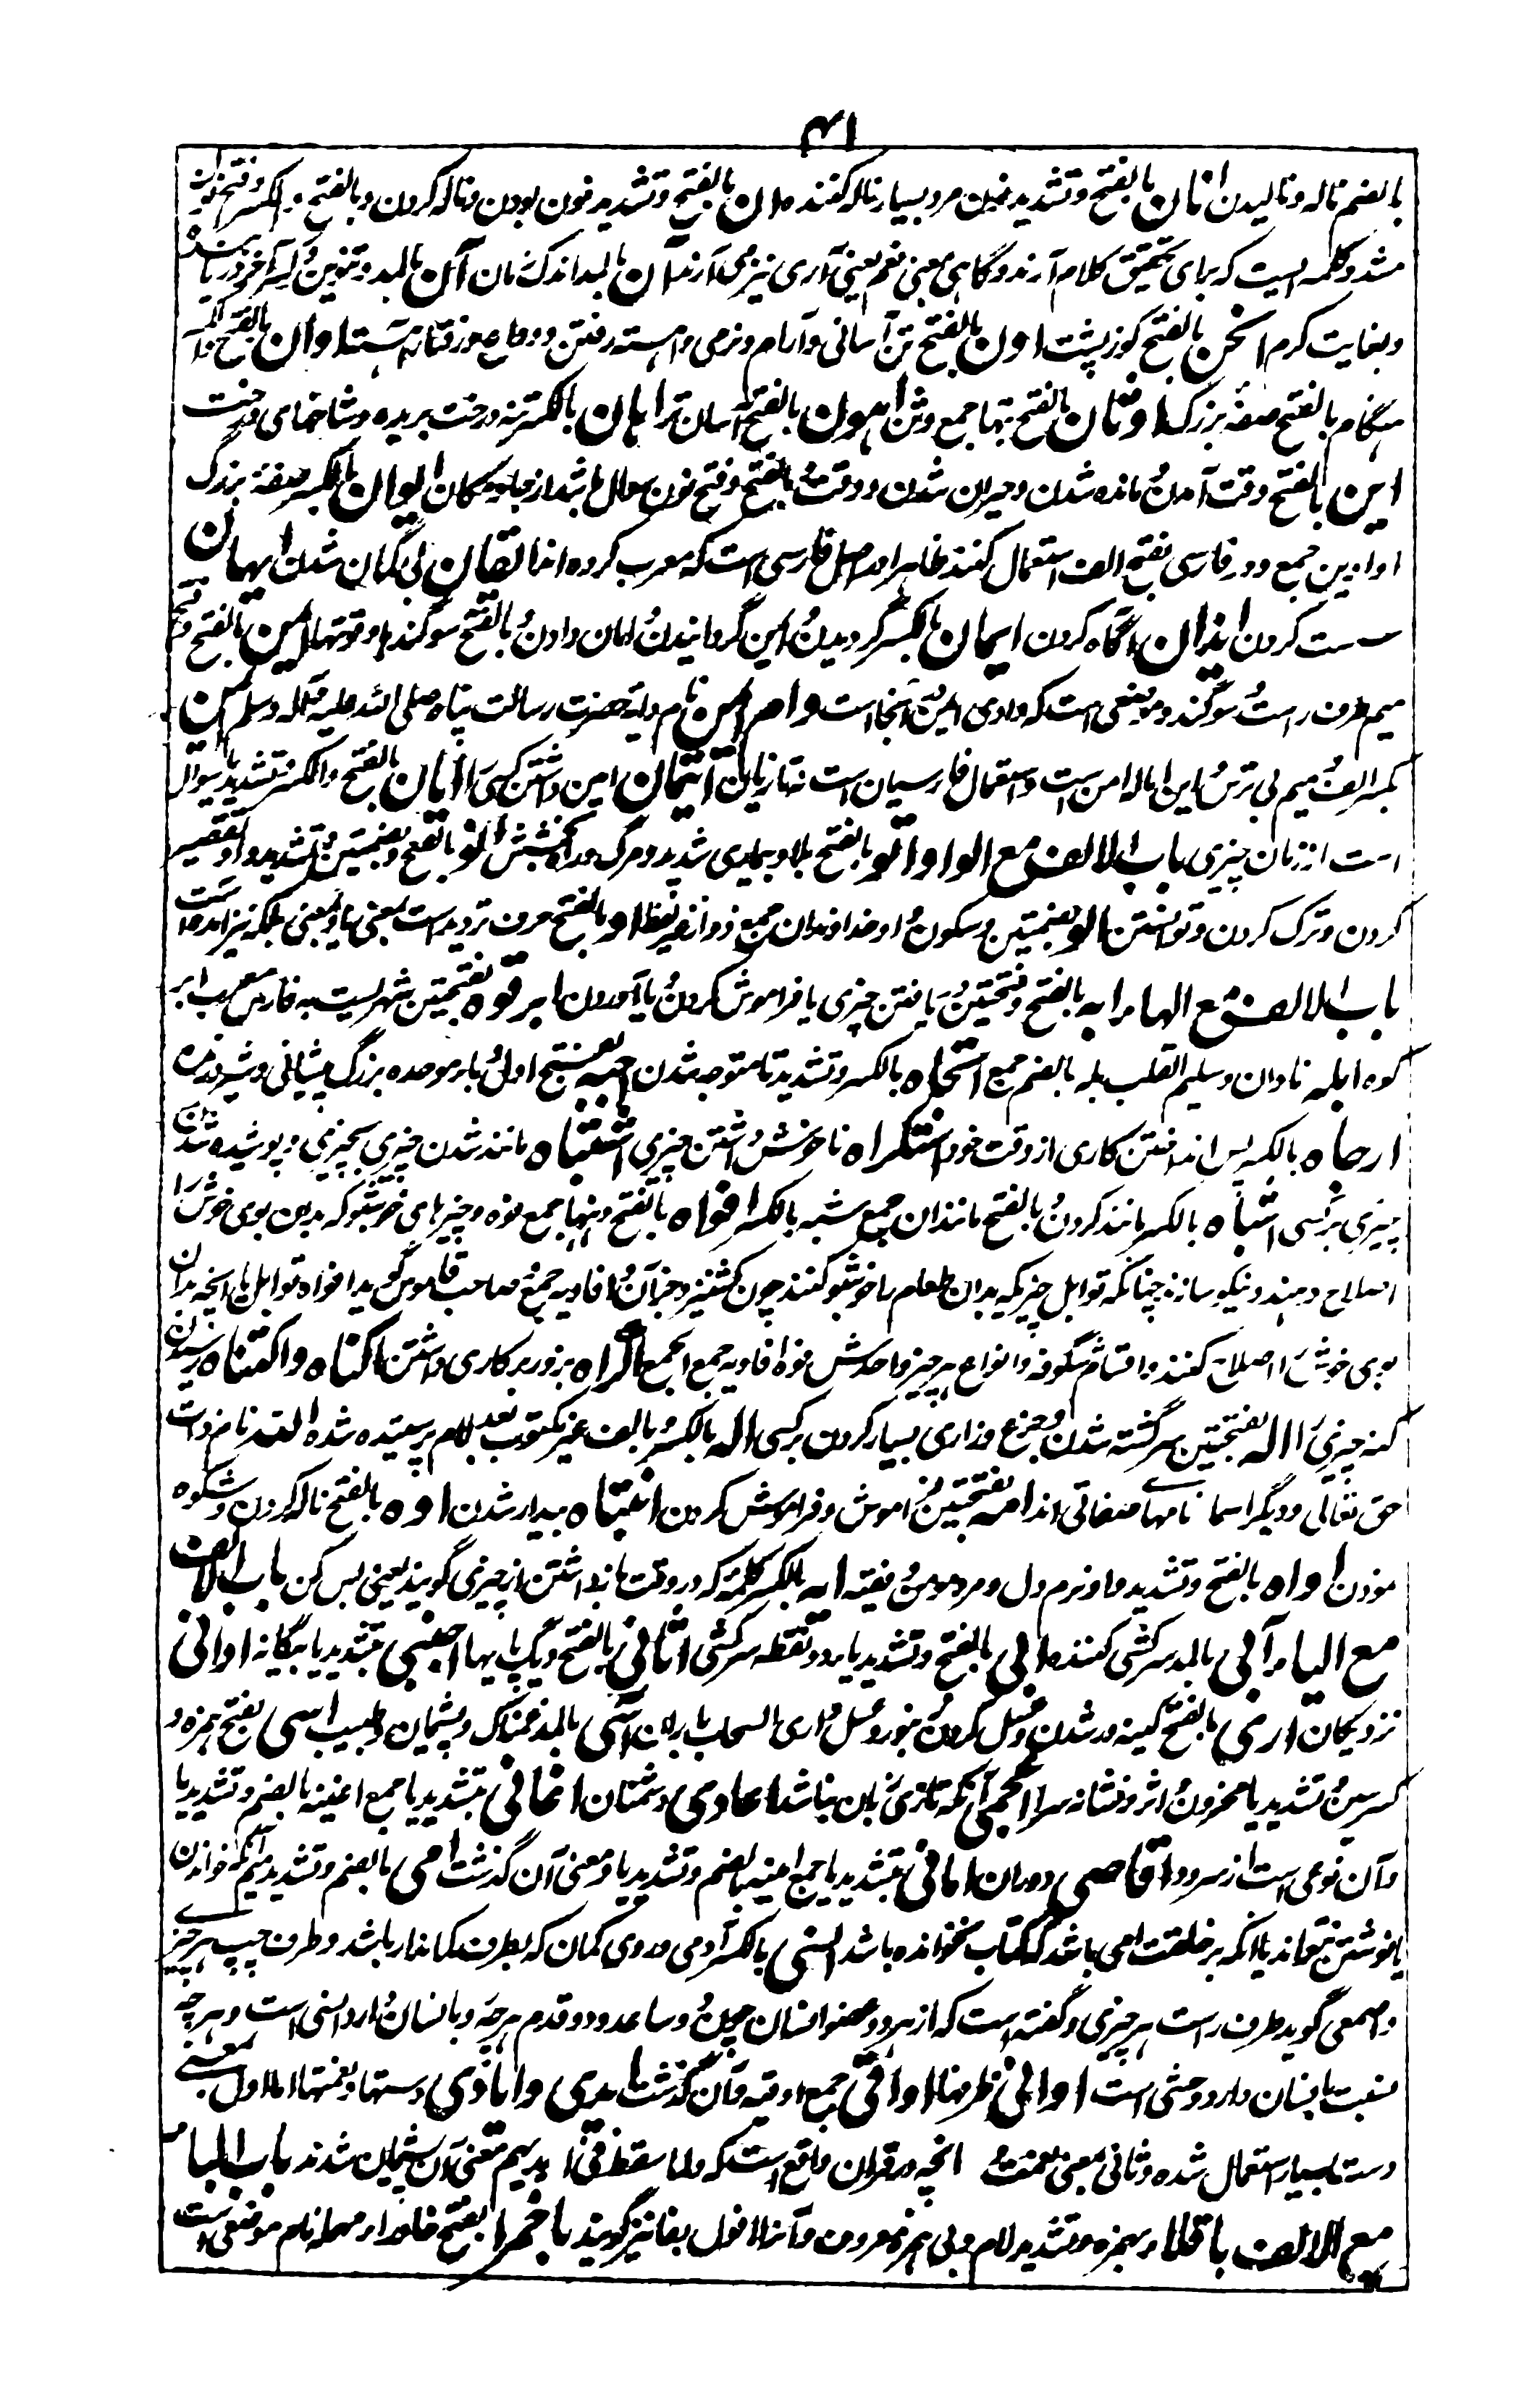 ۴۱
بالضم ناله و نالیدن انان بالفتح و تشدید نون مرد بسیار ناله کننده ان بالفتح و تشدید نون بودن و ناله کردن و بالفتح و الکسر و فتح نون
مشدد کلمه ایست که برای تحقیق کلام آرند و گاهی بمعنی نعم یعنی آری نیز می آرند آن بالمد اندک زمان آن بالمد و تنوین و کسر آخر در یابنده
و بغایت گرم انحن بالفتح کوز پشت اون بالفتح تن آسانی و آرام و نرمی و آهسته رفتن و رفتار آهسته اوان بالفتح
هنگام بالفتح صفه بزرگ اوثان بالفتح بتها جمع وثن اهون بالفتح آسان تر اهان بالکسر تنه درخت بریده و شاخهای درخت
این بالفتح وقت آمدن مانده شدن و حیران شدن و وقت و بالفتح و فتح نون سوال باشد از جا و مکان ایوان بالکسر صفه بزرگ
اواوین جمع و در فارسی بفتح الف استعمال کنند ظاهرا در اصل فارسی است که معرب کرده اند ایقان بی گمان شدن ایهان
سست کردن ایذان آگاه کردن ایمان بالکسر گرویدن و امین گردانیدن و امان دادن و بالفتح سوگندها و قوتها ایمن بالفتح و فتح
میم طرف راست و سوگند و موضعی است که وادی ایمن آنجا است و ام ایمن نام دایه حضرت رسالت پناه صلی الله علیه و آله وسلم ایمن
بکسر الف و میم بی ترس و این اماله امن است و استعمال فارسیان است نه تازیان ائتمان امین داشتن کسی را ایان بالفتح و الکسر و تشدید یا سوال
است از زمان چیزی باب الالف مع الواو اتو بالفتح بلا و بیماری شدید و مرگ و راه بخشش الو بالفتح و بضمتین و تشدید واو تقصیر
کردن و ترک کردن و توانستن الو بضمتین و سکون واو خداوندان جمع ذو از غیر لفظ او بالفتح حرف تردید است بمعنی یا و بمعنی بلکه نیز آمده است
باب الالف مع الها ابه بالفتح و فتحتین دریافتن چیزی یا فراموش کردن و یاد آوردن ابرقوه بفتحتین شهریست به فارس معرب ابر
کوه ابله نادان و سلیم القلب بله بالضم جمع اتجاه بالکسر و تشدید تا متوجه شدن اجبه بفتح اول و بای موحده بزرگ پیشانی و شیر درنده
ارجاه بالکسر پس انداختن کاری از وقت خود استکراه ناخوش داشتن چیزی اشتباه مانند شدن چیزی بچیزی و پوشیده شدن
چیزی بر کسی اشباه بالکسر مانند کردن و بالفتح مانندان جمع شبه بالکسر افواه بالفتح دهنها جمع فوه و چیزهای خوشبو که بدین بوی خوش را
اصلاح دهند و نیکو سازند چنانکه توابل چیزیکه بدان طعام را خوشبو کنند چون کشنیز و جز آن و افاویه جمع صاحب قاموس گوید افواه توابل یا آنچه بدان
بوی خوش را اصلاح کنند و اقسام شگوفه و انواع هر چیز واحدش فوه افاویه جمع الجمع اکراه بزور بر کاری داشتن اکناه و اکتناه رسیدن
کنه چیزی را اله بفتحتین سرگشته شدن و جزع و زاری بسیار کردن بر کسی اله بالکسر و بالف غیر مکتوب بعد لام پرستیده شده الله نام ذات
حق تعالی و دیگر اسما نامهای صفاتی اند امه بفتحتین فراموش و فراموش کردن انتباه بیدار شدن اوه بالفتح ناله کردن و شکوه
نمودن اواه بالفتح و تشدید واو نرم دل و مرد مومن و فقیه ایه بالکسر کلمه که در وقت باز داشتن از چیزی گویند یعنی بس کن باب الالف
مع الیاء آبی بالمد سرکشی کننده ابی بالفتح و تشدید یا دو نقطه سرکشی اثافی بالفتح دیگ پایها اجنبی بتشدید یا بیگانه ادانی
نزدیکان اری بالفتح کینه ور شدن و عسل کردن زنبور و عسل و اری السحاب باران آسی بالمد غمناک و پشیمان و طبیب اسی بفتح همزه و
کسر سین و تشدید یا محزون و اثر و نشانه سرا اعجمی آنکه تازی زبان نباشد اعادی دشمنان اغانی بتشدید یا جمع اغنیه بالضم و تشدید یا
و آن نوعی است از سرود اقاصی دوران امانی بتشدید یا جمع امنیه بالضم و تشدید یا و معنی آن گذشت امی بالضم و تشدید میم آنکه خواندن
یا نوشتن نتواند یا آنکه بر خلقت امی باشد که کتاب نخوانده باشد انسی بالکسر آدمی و روی کمان که بطرف کماندار باشد و طرف چپ هر چیز
و اصمعی گوید طرف راست هر چیزی و گفته است که از هر دو عضو انسان چون و ساعد و دو قدم هر چه رو بانسان دارد انسی است و هر چه
نسبت بانسان دارد وحشی است اوانی ظرفها اواقی جمع اوقیه و آن گذشت ایدی و ایادی دستها و نعمتها اما اول بمعنی
دست بسیار استعمال شده و ثانی بمعنی نعمت و آنچه در قران واقع است که ولما سقط فی ایدیهم معنی آن پشیمان شدند باب البا
مع الالف باقلا بهمزه و تشدید لام و بی همزه معروف و آنرا فول بفا نیز گویند باخمرا بفتح خا و را مهمله نام موضعی است